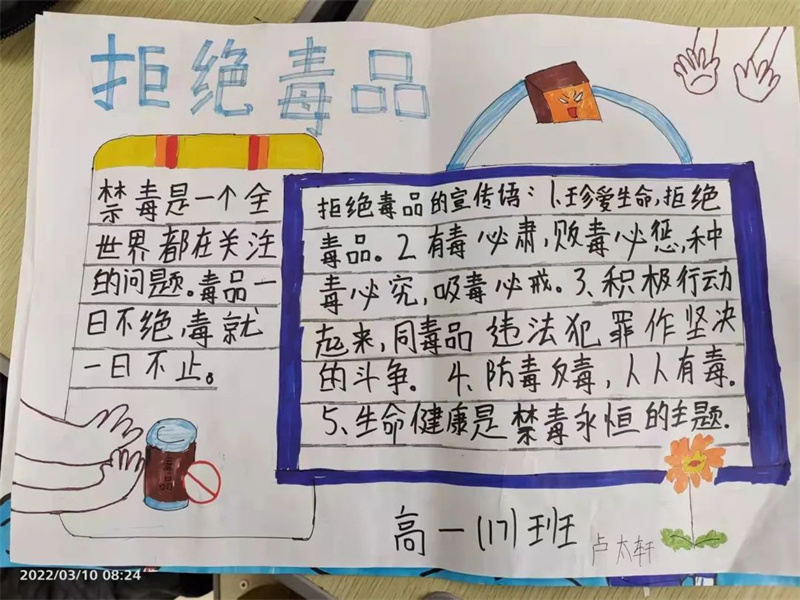 拒绝毒品
禁毒是一个全
世界都在关注
的问题。毒品一
日不绝,毒就
一日不止。
拒绝毒品的宣传语:1.珍爱生命,拒绝
毒品。2有毒必肃,贩毒必惩,种
毒必究,吸毒必戒。3、积极行动
起来,同毒品违法犯罪作坚决
的斗争。4、防毒反毒,人人有毒.
5、生命健康是禁毒永恒的主题.
毒品
高一(17)班
卢太轩
2022/03/10 08:24